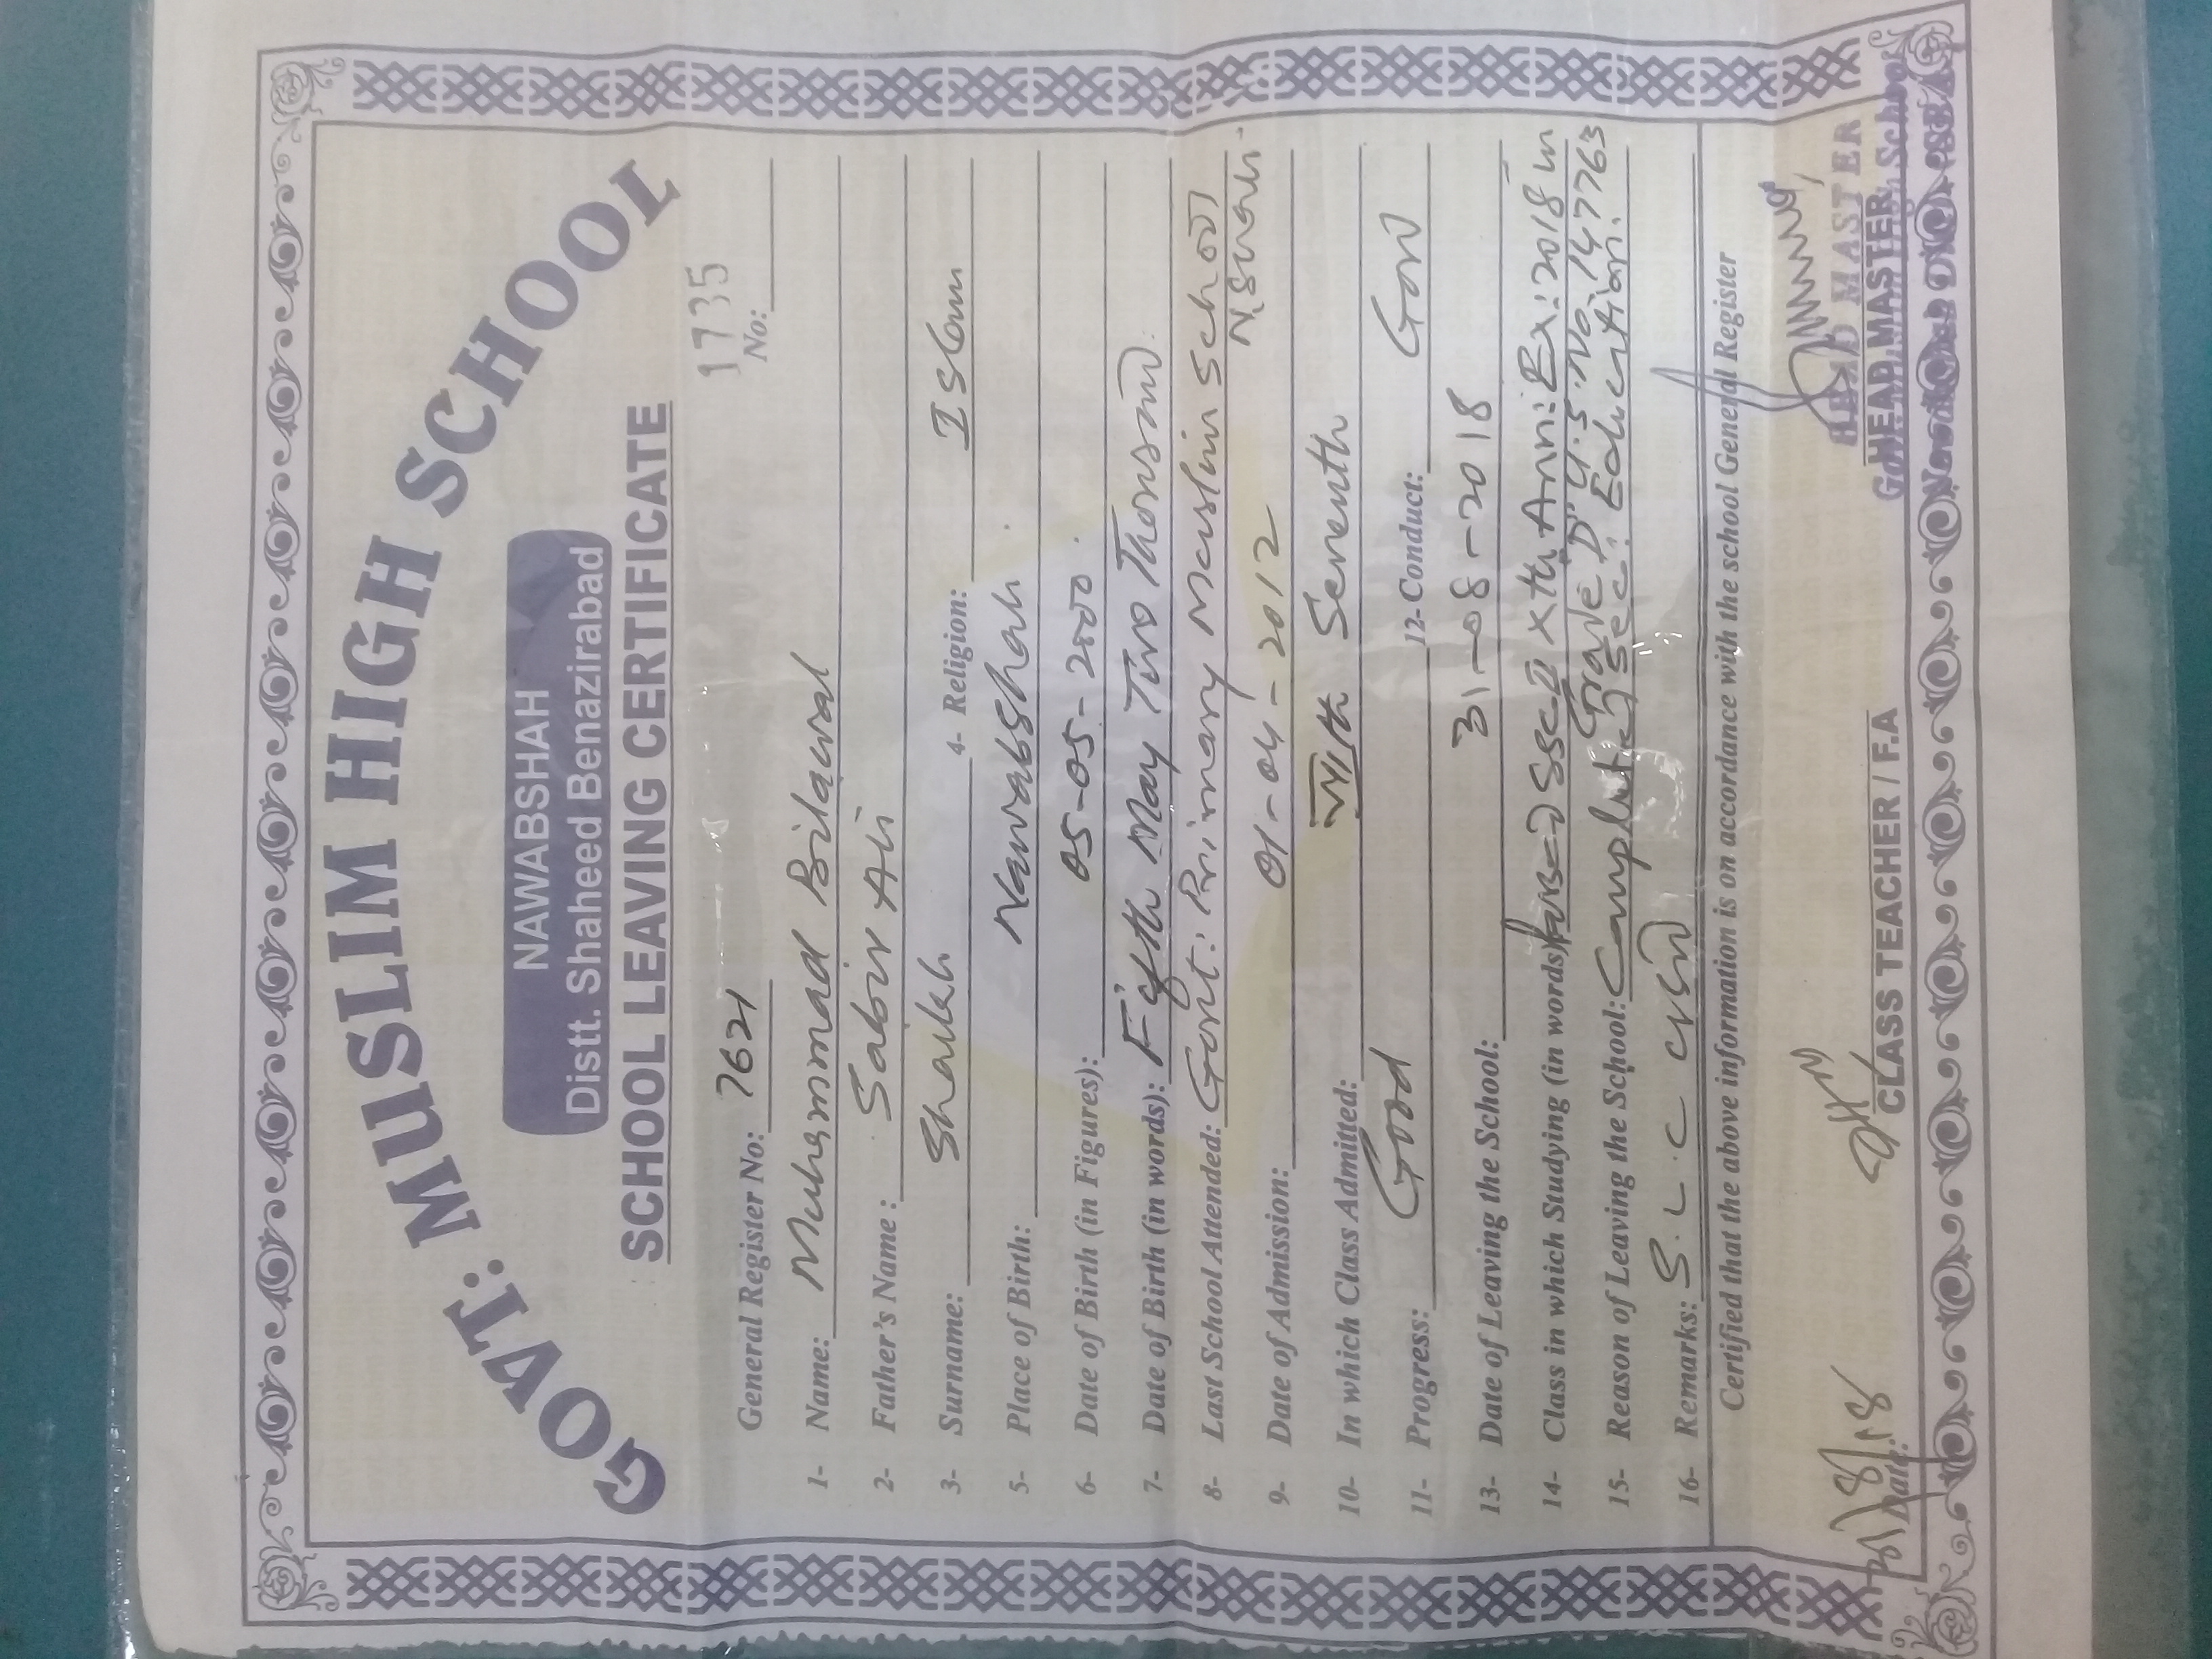 GOVT: MUSLIM HIGH SCHOOL
NAWABSHAH
Distt. Shaheed Benazirabad
SCHOOL LEAVING CERTIFICATE
1735
General Register No: 7621 No:
1- Name: Muhammad Bilawal
2- Father's Name : Sabir Ali
3- Surname: Shaikh 4- Religion: Islam
5- Place of Birth: Nawabshah.
6- Date of Birth (in Figures): 05-05-2000.
7- Date of Birth (in words): Fifth May Two Thousand.
8- Last School Attended: Govt: Primary Muslim School
N.Shah.
9- Date of Admission: 01-04-2012
10- In which Class Admitted: VIIth Seventh
11- Progress: Good 12- Conduct: Good
13- Date of Leaving the School: 31-08-2018
14- Class in which Studying (in words) Passed SSC II Xth Ann: Ex: 2018 in
Grade "D" U.S. No. 147763
15- Reason of Leaving the School: Completed Sec: Education.
16- Remarks: S.L.C
Certified that the above information is on accordance with the school General Register
31/8/18
Date:
CLASS TEACHER / F.A
HEAD MASTER
HEAD MASTER
Govt. Muslim High School